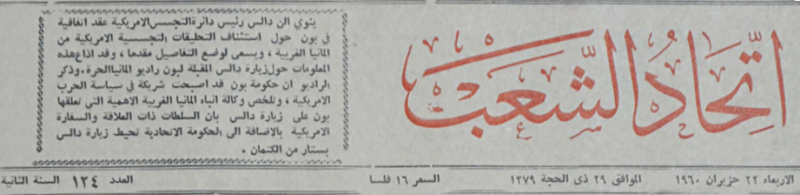 اتحاد الشعب
ينوي الن دالس رئيس دائرة التجسس الامريكية عقد اتفاقية
في بون حول استئناف التحليقات التجسسية الامريكية من
المانيا الغربية ، ويسعى لوضع التفاصيل مقدما ، وقد اذاع هذه
المعلومات حول زيارة دالس المقبلة لبون راديو المانيا الحرة . وذكر
الراديو ان حكومة بون قد اصبحت شريكة في سياسة الحرب
الامريكية ، وتلخص وكالة انباء المانيا الغربية الاهمية التي تعلقها
بون على زيارة دالس بان السلطات ذات العلاقة والسفارة
الامريكية بالاضافة الى الحكومة الاتحادية تحيط زيارة دالس
بستار من الكتمان .
الاربعاء ٢٢ حزيران ١٩٦٠ الموافق ٢٩ ذي الحجة ١٣٧٩ السعر ١٦ فلسا العدد ١٢٤ السنة الثانية